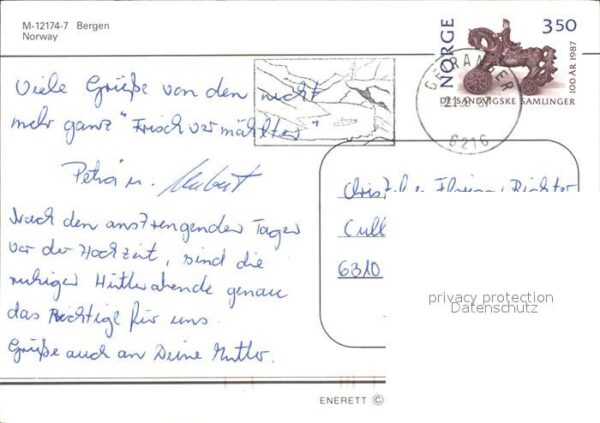 M-12174-7 Bergen
Norway
NORGE
3 50
100 ÅR 1987
DE SANDVIGSKE SAMLINGER
GEIRANGER
6216
Viele Grüße von den nicht
mehr ganz "Frisch vermählten"
Petra u. Hubert
Nach den anstrengenden Tagen
vor der Hochzeit, sind die
ruhigen Hüttenabende genau
das Richtige für uns.
Grüße auch an Deine Mutter.
Florian Richter
6310
privacy protection
Datenschutz
ENERETT ©